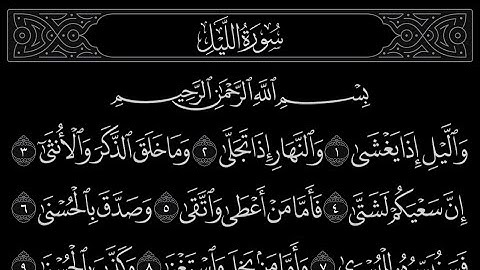 سُورَةُ اللَّيْلِ
بِسْمِ ٱللَّهِ ٱلرَّحْمَٰنِ ٱلرَّحِيمِ
وَٱلَّيْلِ إِذَا يَغْشَىٰ ١ وَٱلنَّهَارِ إِذَا تَجَلَّىٰ ٢ وَمَا خَلَقَ ٱلذَّكَرَ وَٱلْأُنثَىٰٓ ٣
إِنَّ سَعْيَكُمْ لَشَتَّىٰ ٤ فَأَمَّا مَنْ أَعْطَىٰ وَٱتَّقَىٰ ٥ وَصَدَّقَ بِٱلْحُسْنَىٰ ٦
فَسَنُيَسِّرُهُۥ لِلْيُسْرَىٰ ٧ وَأَمَّا مَنۢ بَخِلَ وَٱسْتَغْنَىٰ ٨ وَكَذَّبَ بِٱلْحُسْنَىٰ ٩